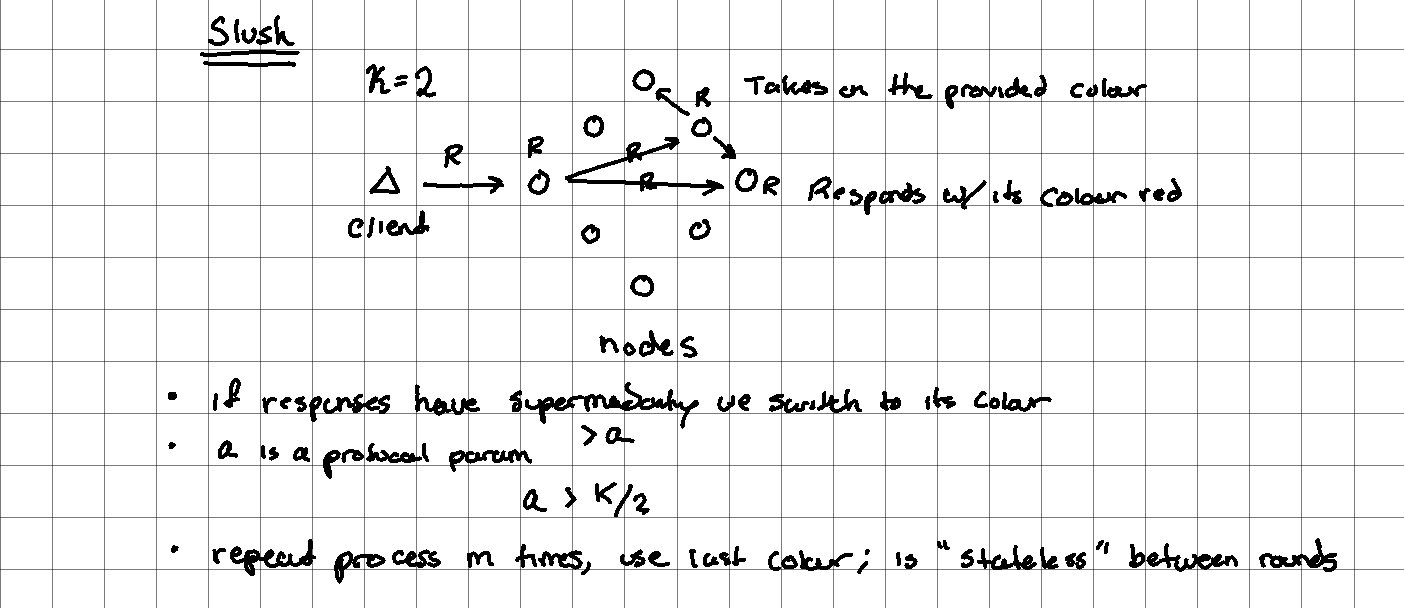 Slush
K=2
R Takes on the provided colour
R R R
R
client
R Responds w/ its colour red
nodes
• if responses have supermajority we switch to its colour
> a
• a is a protocol param
a > K/2
• repeat process m times, use last colour; is "stateless" between rounds